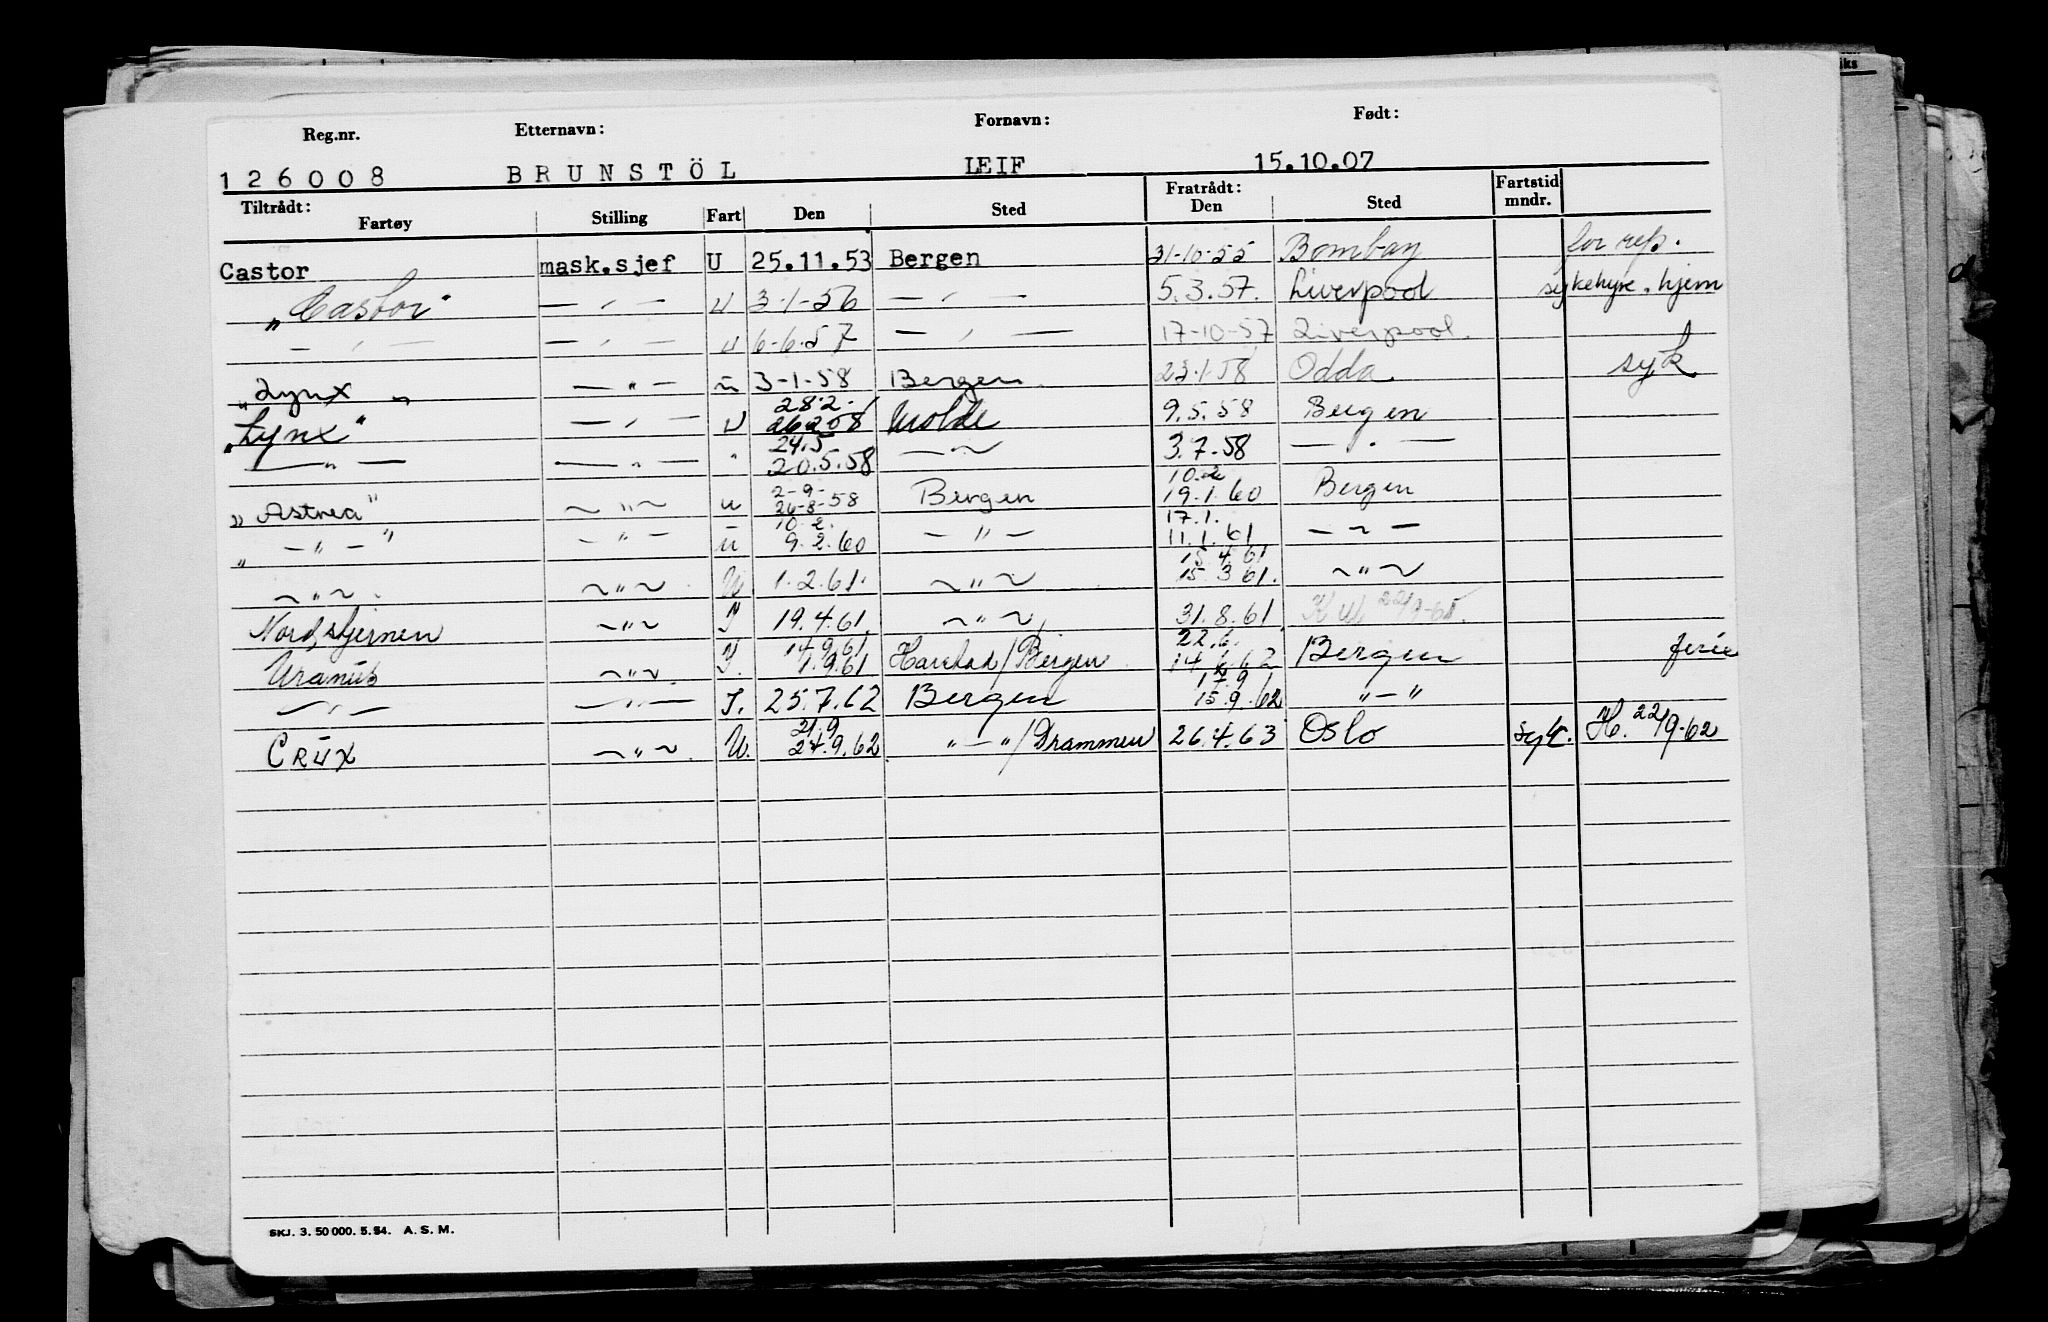 iks
Reg.nr. Etternavn: Fornavn: Født:
126008 BRUNSTÖL LEIF 15.10.07
Tiltrådt: Fratrådt: Fartstid
Fartøy Stilling Fart Den Sted Den Sted mndr.
Castor mask.sjef U 25.11.53 Bergen 31-10-55 Bombay for rep.
"Castor" — " — U 3-1-56 — " — 5.3.57. Liverpool sykehyre, hjem
— " — — " — U 6-6-57 — " — 17-10-57 Liverpool.
"Lynx" — " — u 3-1-58 Bergen 23.1.58 Odda syk
28.2.
"Lynx" — " — U 26.2.58 Molde 9.5.58 Bergen
24.5
— " — — " — " 20.5.58 — " — 3.7.58 — " —
2-9- 10.2
"Astrea" — " — u 26-8-58 Bergen 19.1.60 Bergen
10.2. 17.1.
" — " — " — " — u 9.2.60 — " — 11.1.61 — " —
15.4.61
— " — — " — U 1.2.61. — " — 15.3.61. — " —
Nordstjernen — " — I 19.4.61. — " — 31.8.61 22/9-61.
14.9.61 22.6.
Uranus — " — I. 1.9.61 Harstad/Bergen 14.6.62 Bergen ferie
17.9
— " — — " — I. 25.7.62 Bergen 15.9.62 " — "
21/9
CRUX — " — U. 24.9.62 " — "/Drammen 26.4.63 Oslo syk. H. 22/9-62
SKJ. 3. 50 000. 5. 54. A. S. M.